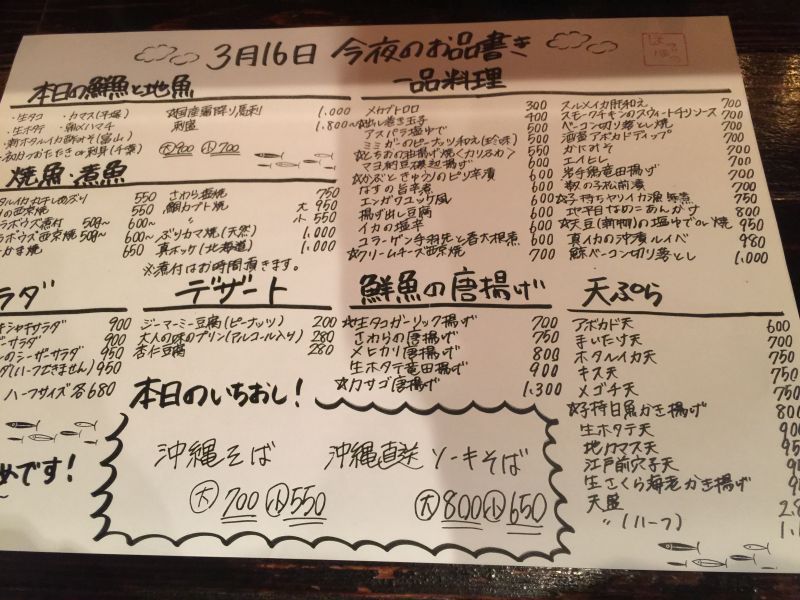 3月16日 今夜のお品書き
本日の鮮魚と地魚
・生タコ ・カマス(平塚)
・生ホタテ ・鯛ハマチ
1,000
刺盛 1,800〜
大900 小700
焼魚・煮魚
550 さわら塩焼 750
550 鯛カブト焼 大 950
500〜 600〜 〃 小 550
500〜 600〜 ぶりカマ焼(天然) 1,000
550 真ホッケ(北海道) 1,000
※煮付はお時間頂きます。
一品料理
メカブトロロ 300
☆出し巻き玉子 400
アスパラ塩ゆで 500
ミミガーのピーナッツ和え(珍味) 500
☆とちおの油揚げ焼<カリふわ> 600
マヨ納豆磯辺揚げ 500
☆かぶときゅうりのピリ辛漬 600
なすの旨辛煮 600
エンガワユッケ風 600
揚げ出し豆腐 600
イカの塩辛 600
コラーゲン手羽先と春大根煮 600
☆クリームチーズ西京焼 700
スルメイカ肝和え 700
スモークチキンのスウィートチリソース 700
ベーコン切り落とし焼 700
酒盗アボカドディップ 700
かにみそ 700
エイヒレ 700
岩手鶏竜田揚げ 700
数の子松前漬 700
☆子持ちヤリイカ漁師煮 750
地平目なのこあんかけ 800
☆天豆(新物)の塩ゆでor焼 950
真イカの沖漬ルイベ 980
鯨ベーコン切り落とし 1,000
ラダ
シャキサラダ 900
ーサラダ 900
のシーザーサラダ 950
ダ(ハーフできません) 950
ハーフサイズ各680
デザート
ジーマーミー豆腐(ピーナッツ) 200
大人の味のプリン(アルコール入り) 280
杏仁豆腐 280
鮮魚の唐揚げ
☆生タコガーリック揚げ 700
さわらの唐揚げ 750
メヒカリ唐揚げ 800
生ホタテ竜田揚げ 900
☆カサゴ唐揚げ 1,300
天ぷら
アボカド天 600
まいたけ天 700
ホタルイカ天 750
キス天 750
メゴチ天 750
☆子持白魚かき揚げ 800
生ホタテ天
地カマス天
江戸前穴子天
生さくら海老かき揚げ
天盛
〃(ハーフ)
本日のいちおし!
沖縄そば
大700 小550
沖縄直送ソーキそば
大800 小650
めです!